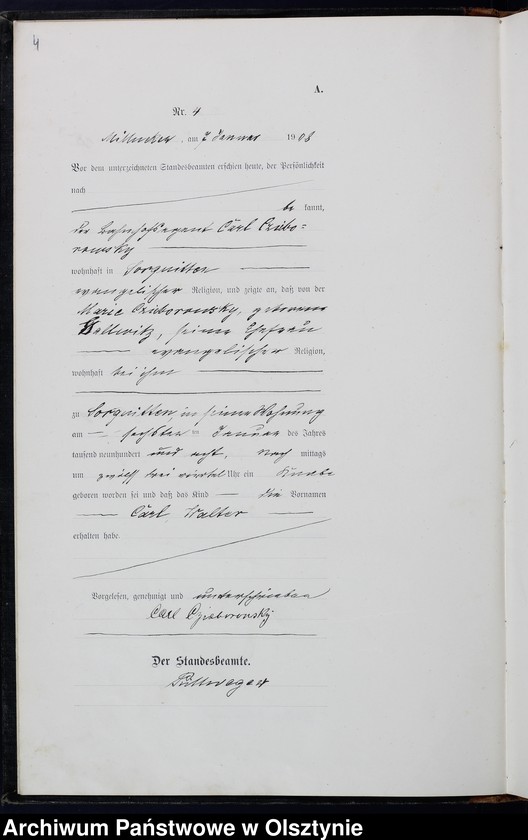 4
A.
Nr. 4
am 7 Januar 1908
Vor dem unterzeichneten Standesbeamten erschien heute, der Persönlichkeit
nach
be kannt,
der Bahnhofsagent Carl Czibo=
rowsky
wohnhaft in Sorquitten
evangelischer Religion, und zeigte an, daß von der
Marie Cziborowsky, geborene
seiner Ehefrau
evangelischer Religion,
wohnhaft bei ihm
zu Sorquitten in seiner Wohnung
am sechsten ten Januar des Jahres
tausend neunhundert und acht, Nach mittags
um zwölf drei viertel Uhr ein Knabe
geboren worden sei und daß das Kind die Vornamen
Carl Walter
erhalten habe.
Vorgelesen, genehmigt und unterschrieben
Carl Cziborowsky
Der Standesbeamte.
Archiwum Państwowe w Olsztynie